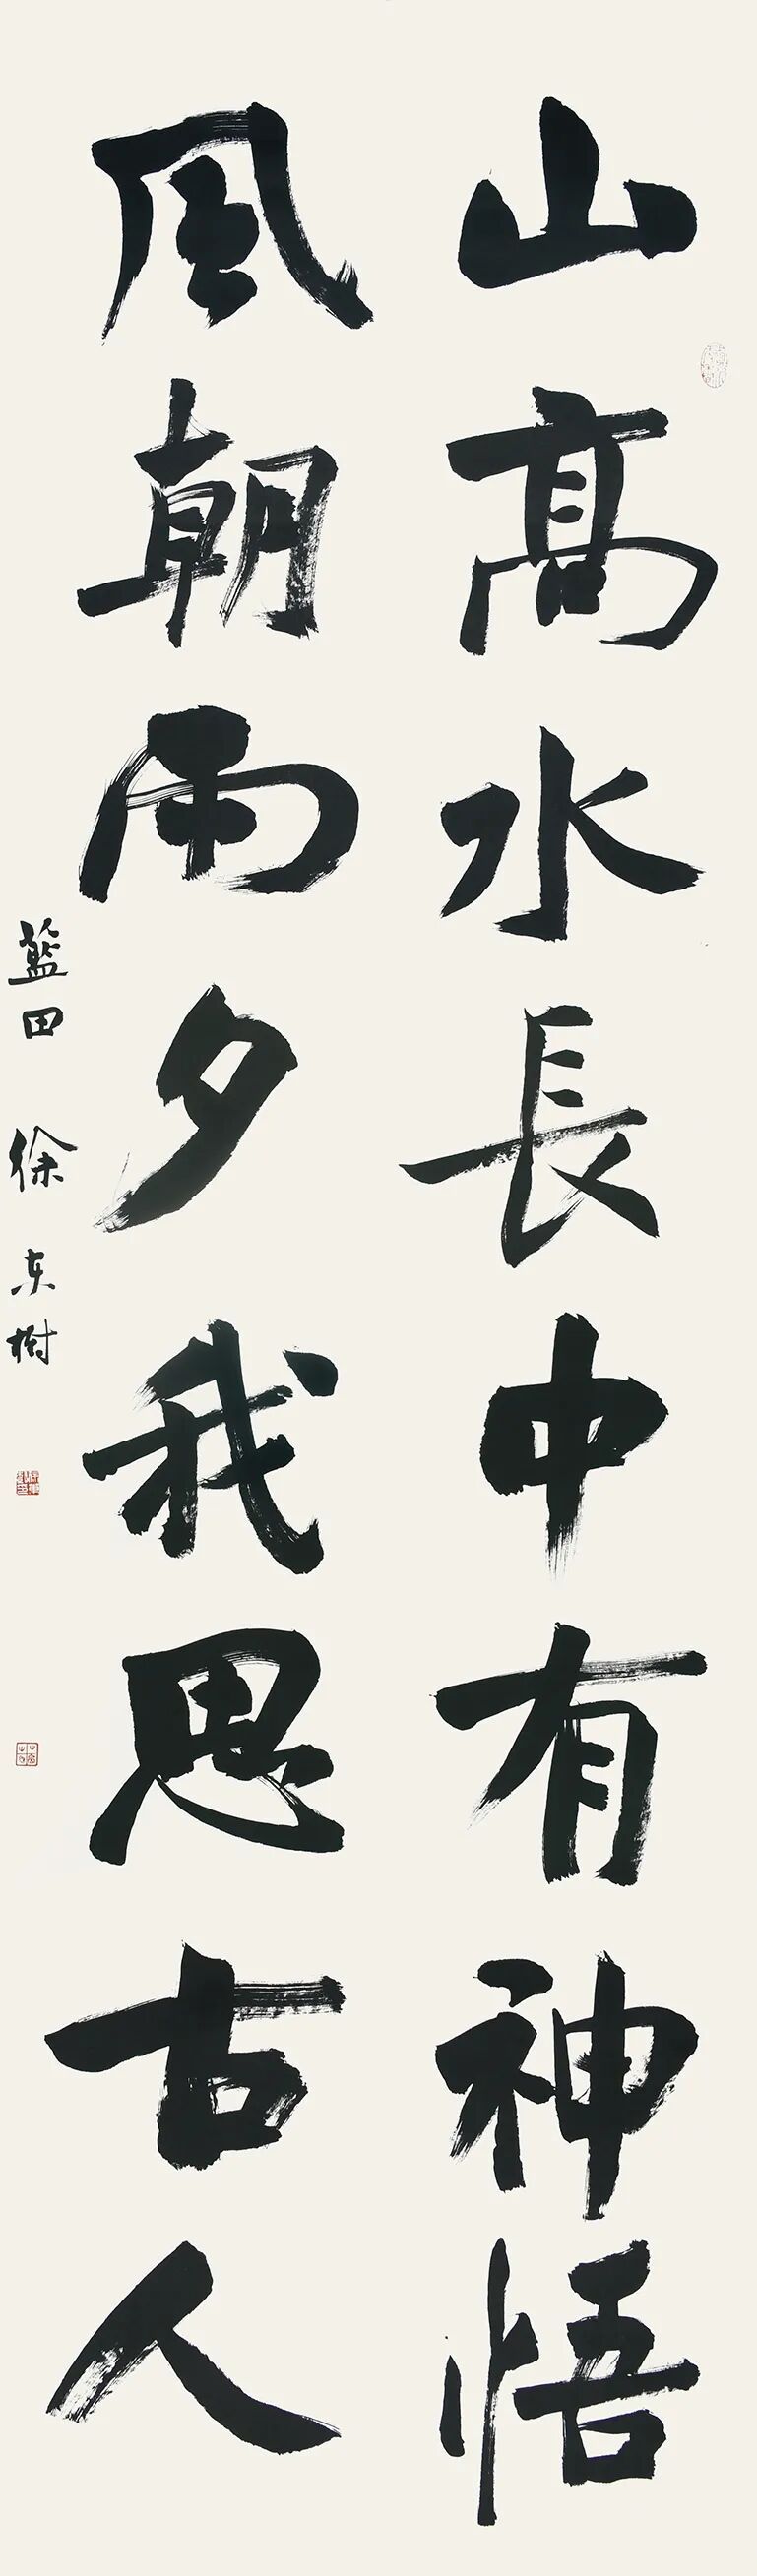 山高水長中有神悟
風朝雨夕我思古人
藍田徐东樹